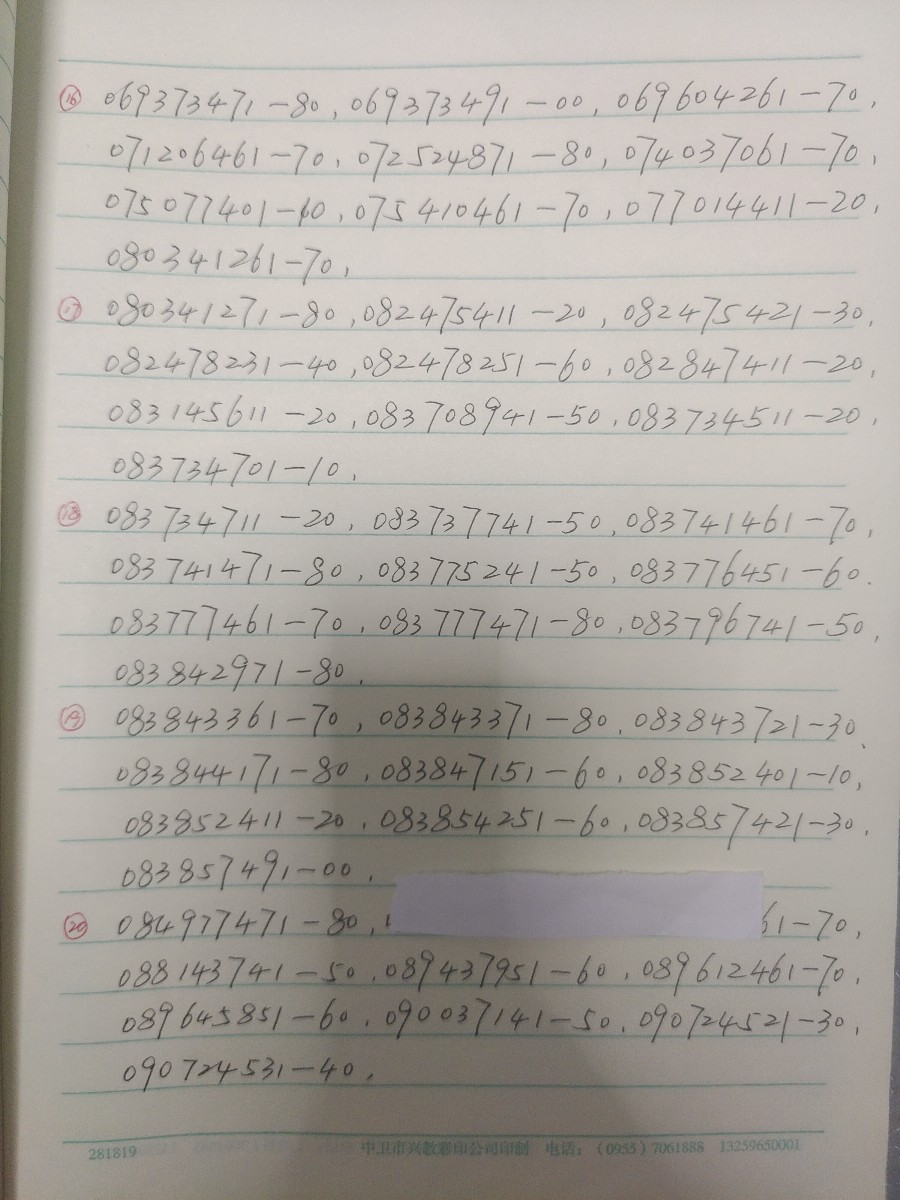 ⑯ 069373471-80, 069373491-00, 069604261-70,
071206461-70, 072524871-80, 074037061-70,
075077401-10, 075410461-70, 077014411-20,
080341261-70,
⑰ 080341271-80, 082475411-20, 082475421-30,
082478231-40, 082478251-60, 082847411-20,
083145611-20, 083708941-50, 083734511-20,
083734701-10,
⑱ 083734711-20, 083737741-50, 083741461-70,
083741471-80, 083775241-50, 083776451-60.
083777461-70, 083777471-80, 083796741-50,
083842971-80.
⑲ 083843361-70, 083843371-80, 083843721-30,
083844171-80, 083847151-60, 083852401-10,
083852411-20, 083854251-60, 083857421-30,
083857491-00,
⑳ 084977471-80, 61-70,
088143741-50, 089437951-60, 089612461-70,
089645851-60, 090037141-50, 090724521-30,
090724531-40,
281819 中卫市兴教彩印公司印制 电话：(0955) 7061888 13259650001